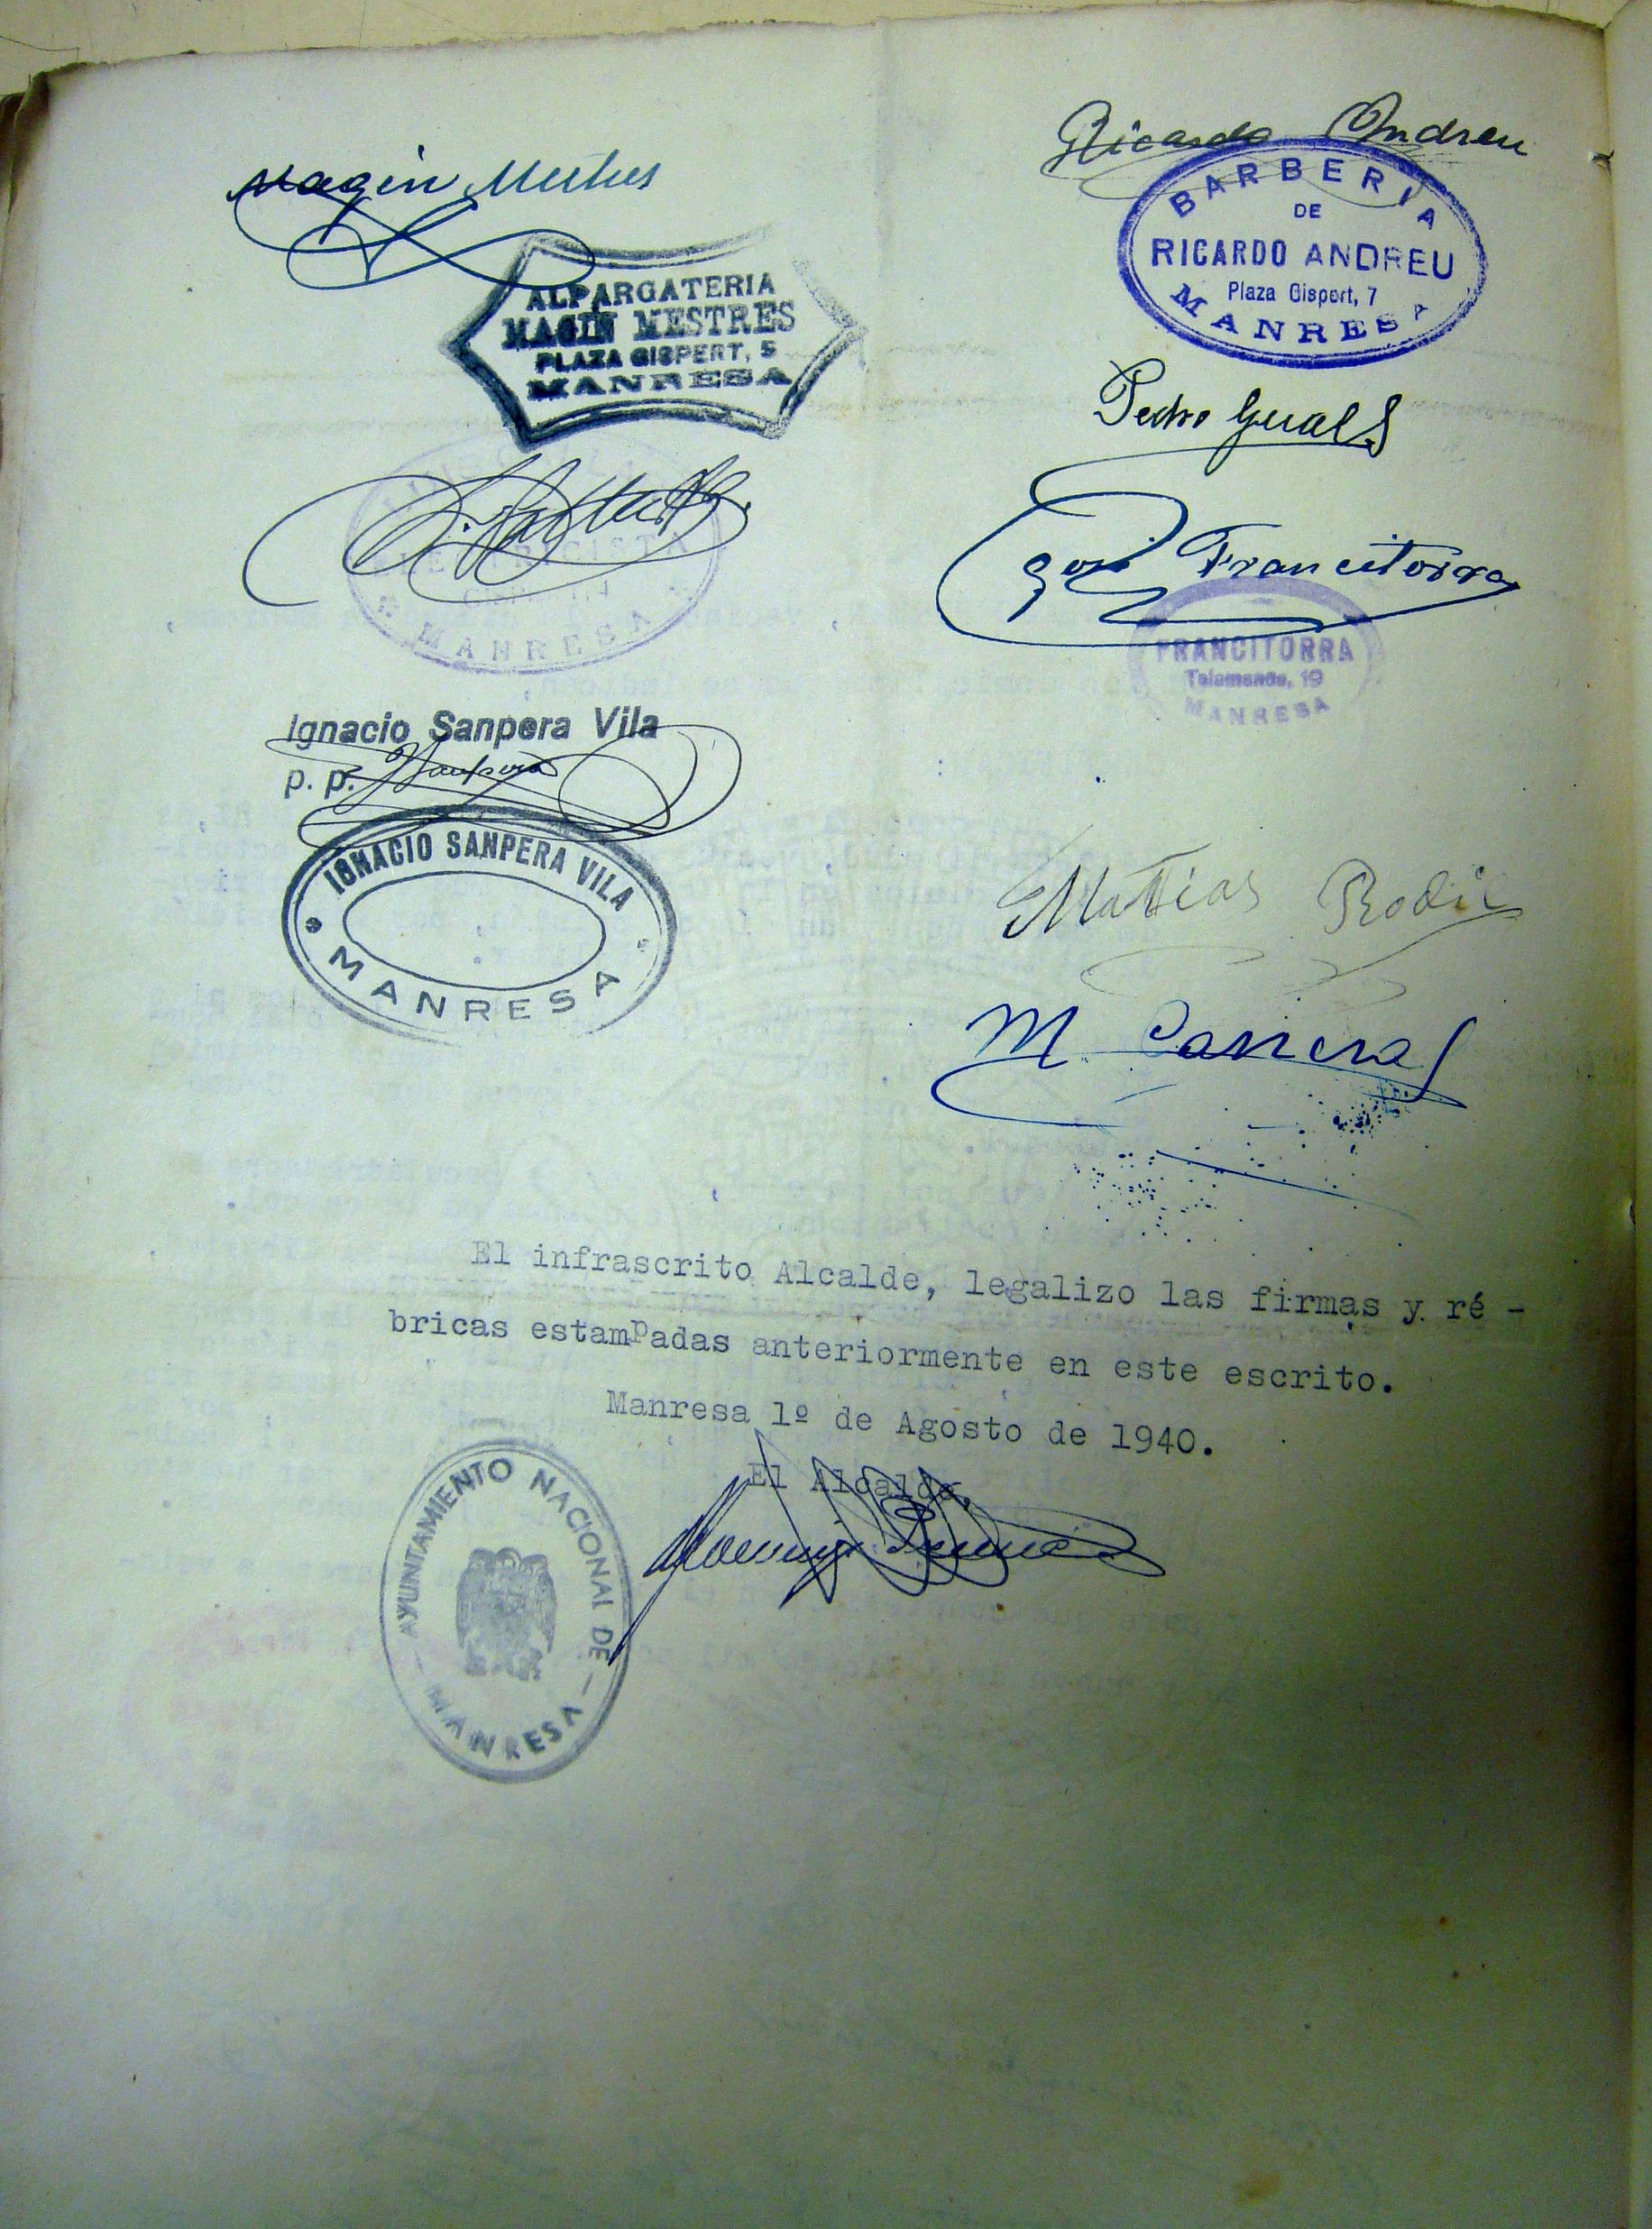 Magin Mestres
ALPARGATERIA
MAGIN MESTRES
PLAZA GISPERT, 5
MANRESA
Ricardo Andreu
BARBERIA
DE
RICARDO ANDREU
Plaza Gispert, 7
MANRESA
Pedro Guals
MANRESA
José Francitorra
FRANCITORRA
Talamanca, 19
MANRESA
Ignacio Sanpera Vila
p. p. Sanpera
IGNACIO SANPERA VILA
MANRESA
Mattias Rodil
M. Carreras
El infrascrito Alcalde, legalizo las firmas y ré -
bricas estampadas anteriormente en este escrito.
Manresa 1º de Agosto de 1940.
El Alcalde,
AYUNTAMIENTO NACIONAL DE
MANRESA